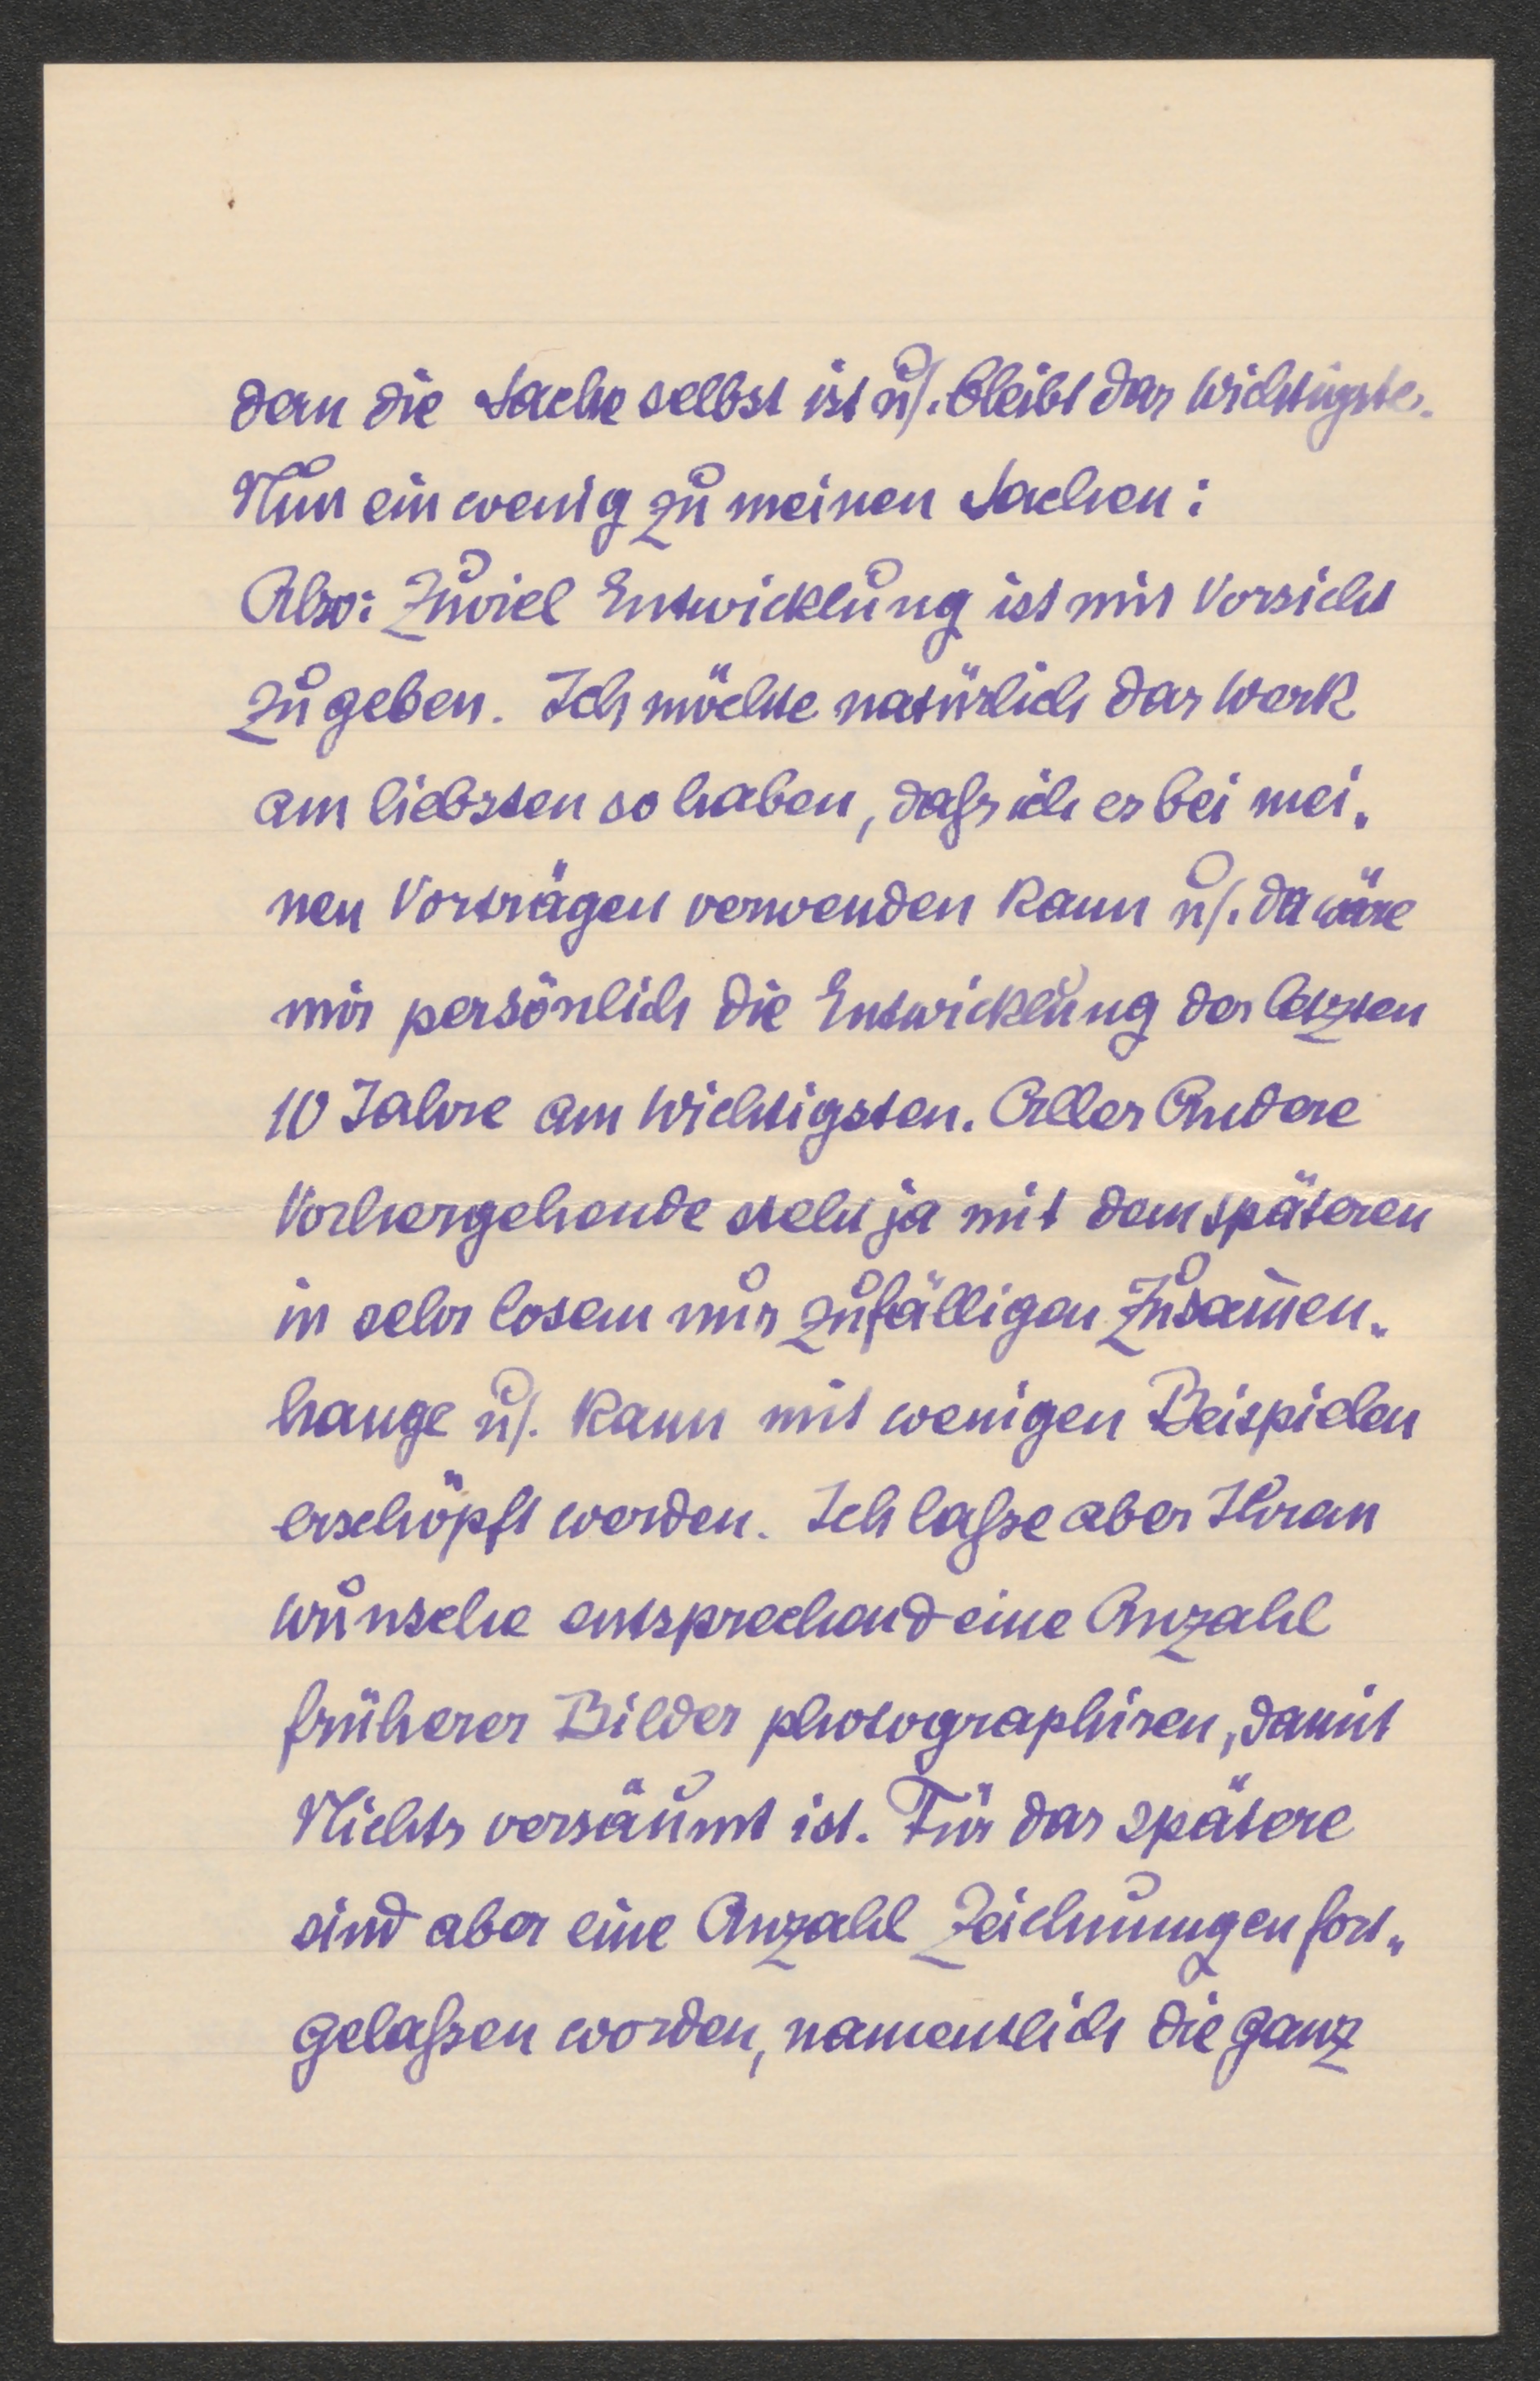 denn die Sache selbst ist u/. bleibt das Wichtigste.
Nun ein wenig zu meinen Sachen:
Also: Zuviel Entwicklung ist mit Vorsicht
zu geben. Ich möchte natürlich das Werk
am liebsten so haben, dafs ich es bei mei„
nen Vorträgen verwenden kann u/. da wäre
mir persönlich die Entwicklung der letzten
10 Jahre am Wichtigsten. Alles Andere
Vorhergehende steht ja mit dem späteren
in sehr losem nur zufälligen Zusam̅en„
hange u/. kann mit wenigen Beispielen
erschöpft werden. Ich lafse aber Ihrem
Wunsche entsprechend eine Anzahl
früherer Bilder photographiren, damit
Nichts versäumt ist. Für das spätere
sind aber eine Anzahl Zeichnungen fort„
gelafsen worden, namentlich die ganz